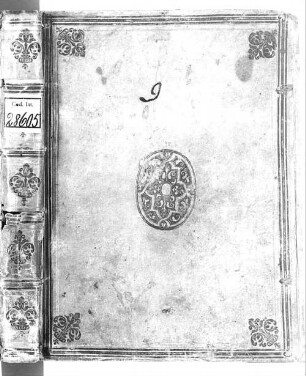 Cod. lat.
28605
9